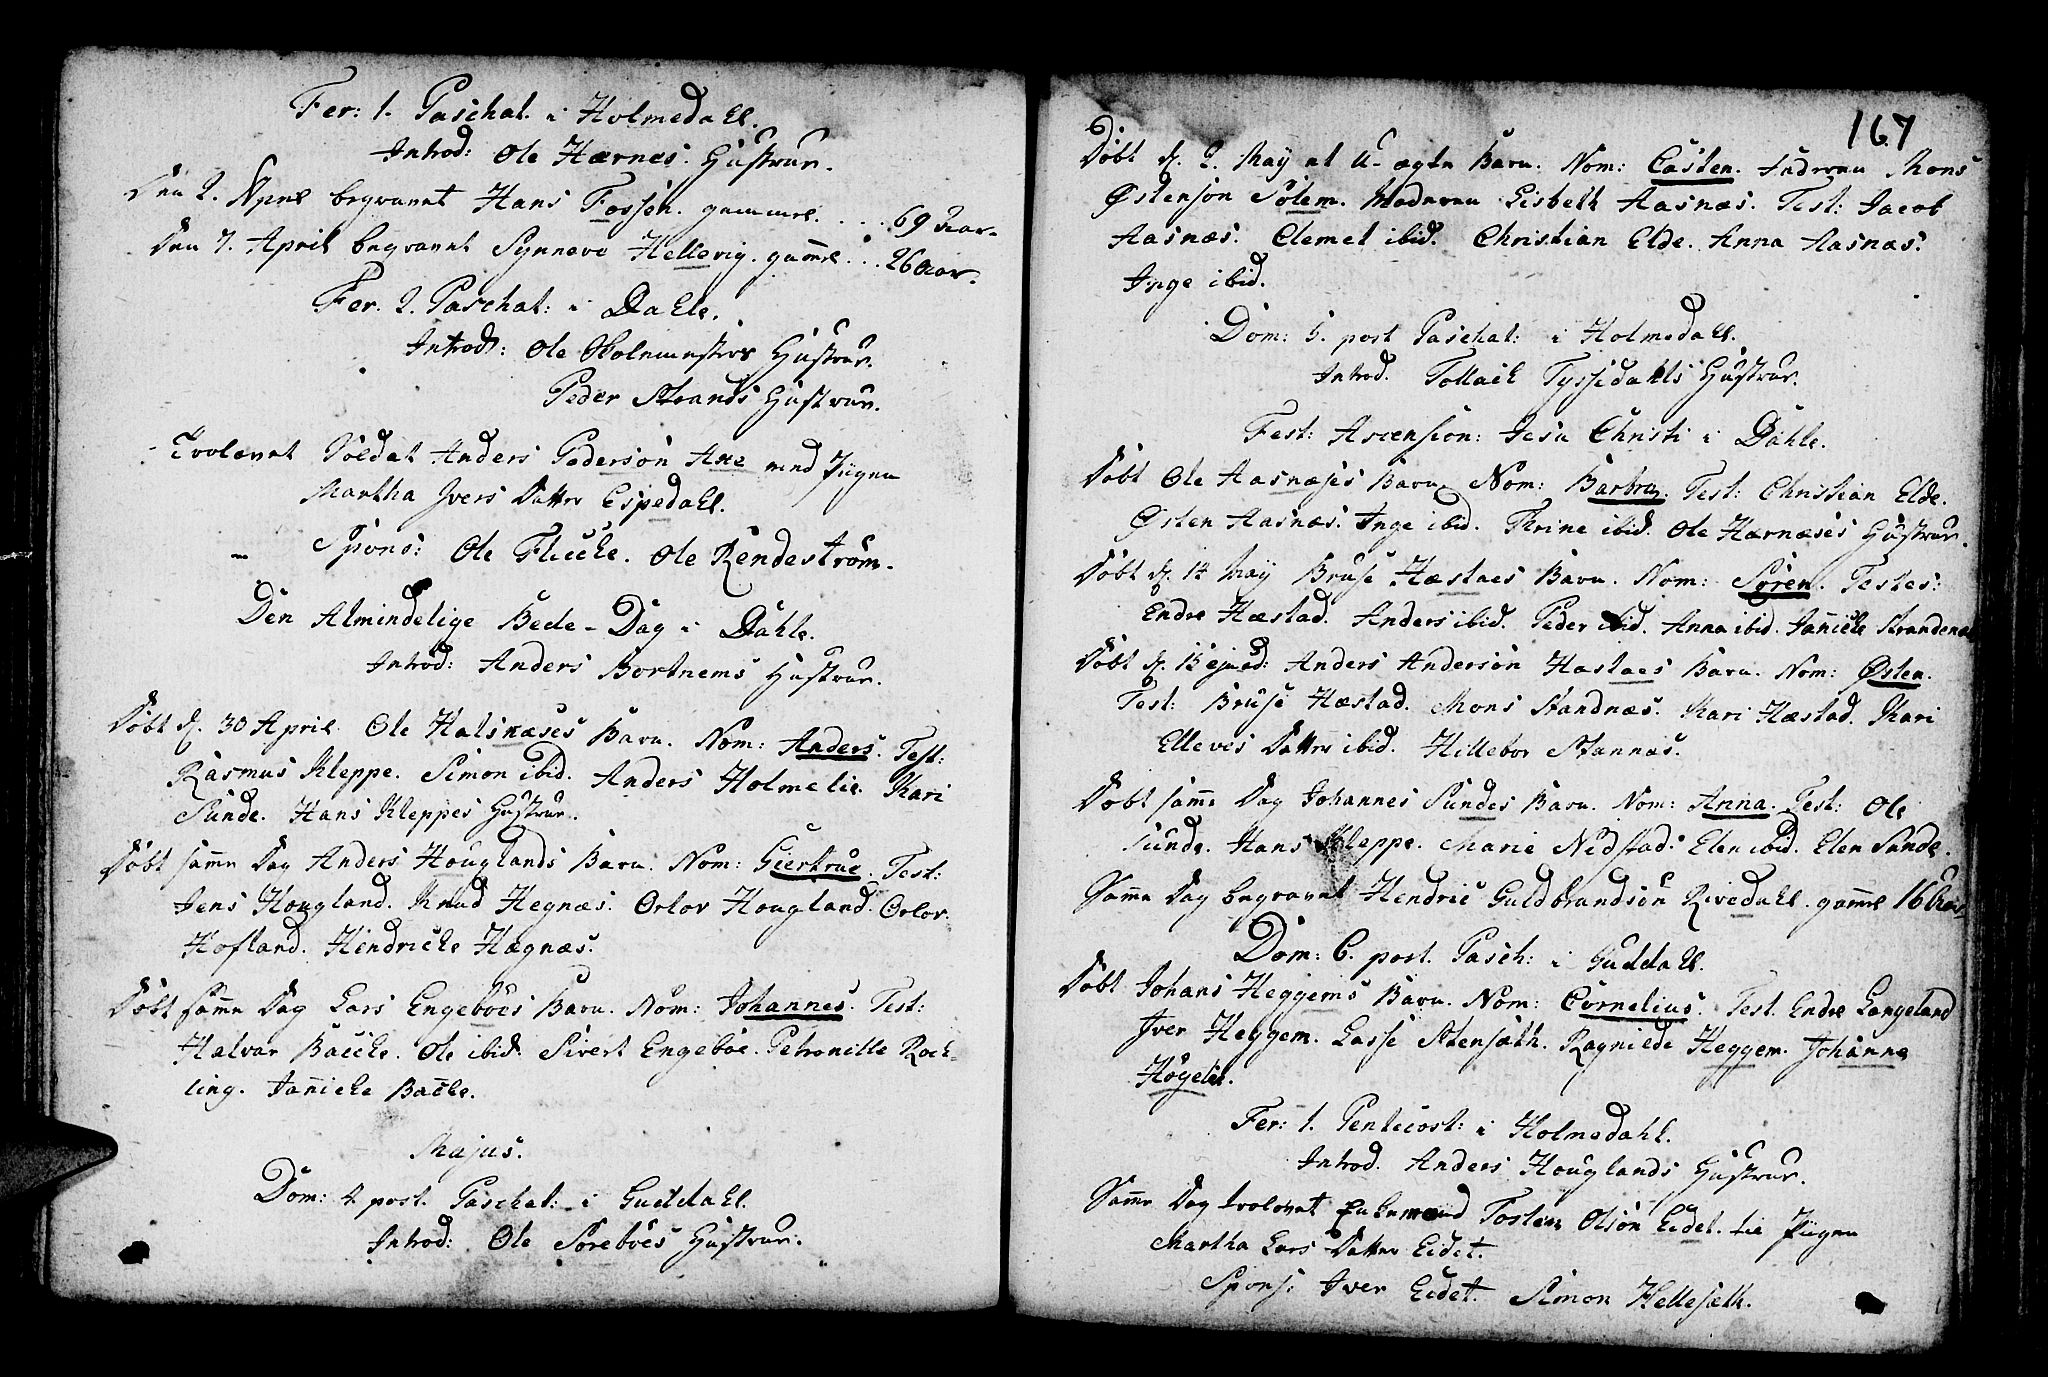 Fer: 1. Paschat. i Holmedahl.
Introd: Ole Hærnes. Hustrue.
Den 2. April begravet Hans Fossen. gammel . . . . 69 Aar.
Den 7. April begravet Synneve Hellevig. gam̄el . . . 26 Aar.
Fer. 2. Paschat: i Dahle.
Introd: Ole Skolemesters Hustrue.
Peder Strands Hustrue.
Trolovet Soldat Anders Pedersøn Aae med Piigen
Martha Ivers Datter Espedahl.
Spons: Ole Flecke. Ole Rendestrøm.
Den Almindelige Bede-Dag i Dahle.
Introd: Anders Bortnems Hustrue.
Døbt d. 30 April. Ole Halsnæses Barn. Nom: Anders. Test:
Rasmus Kleppe. Simon ibid. Anders Holmelie. Kari
Sunde. Hans Kleppes Hustrue.
Døbt sam̄e Dag Anders Houglands Barn. Nom: Giertrue. Test:
Jens Hougland. Knud Hegnæs. Orlov Hougland. Orlov
Hofland. Hendriche Hægnæs.
Døbt sam̄e Dag Lars Engebøes Barn. Nom: Johannes. Test:
Halvar Bache. Ole ibid. Sivert Engebøe. Petronille Röch-
ling. Jan̄iche Bache.
Majus.
Dom: 4 post. Paschat: i Guddahl.
Introd: Ole Sørebøes Hustrue.
167
Døbt d. 2. May et U-ægte Barn. Nom: Casten. Faderen Mons
Østensøn Solem. Moderen Lisbeth Aasnæs. Test: Jacob
Aasnæs. Clemet ibid. Christian Elde. Anna Aasnæs.
Inge ibid.
Dom: 5. post Paschat: i Holmedahl.
Introd. Tollach Tyssedahls Hustrue.
Fest: Ascension: Jesu Christi i Dahle.
Døbt Ole Aasnæses Barn. Nom: Barbra. Test: Christian Elde.
Østen Aasnæs. Inge ibid. Thrine ibid. Ole Hærnæses Hustrue.
Døbt d. 14 May Bruse Hæstaes Barn. Nom: Søren. Testes:
Endre Hæstad. Anders ibid. Peder ibid. Anna ibid. Jan̄iche Strandenæs
Døbt d. Anders Andersøn Hæstaes Barn. Nom: Østen.
Test: Bruse Hæstad. Mons Standnæs. Kari Hæstad. Kari
Elleves Datter ibid. Hillebor Stannæs.
Døbt sam̄e Dag Johannes Sundes Barn. Nom: Anna. Test: Ole
Sunde. Hans Kleppe. Marie Nedstad. Elen ibid. Elen Sande.
Sam̄e Dag begravet Hendric Guldbrandsøn Rivedahl. gam̄el 16 Aar.
Dom: 6. post. Pasch: i Guddahl.
Døbt Johans Heggems Barn. Nom: Cornelius. Test. Endre Langeland
Iver Heggem. Lasse Stensæth. Ragnilde Heggem. Johanna
Høgelie.
Fer: 1. Pentecost: i Holmedahl.
Introd. Anders Houglands Hustrue.
Sam̄e Dag trolovet Enkemand Tosten Olsøn Eidet. til Piigen
Martha Lars Datter Eidet.
Spons. Iver Eidet. Simon Hellesæth.